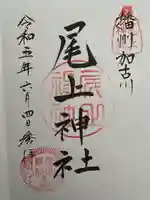 播州 加古川
尾上神社
令和五年六月四日奉拝